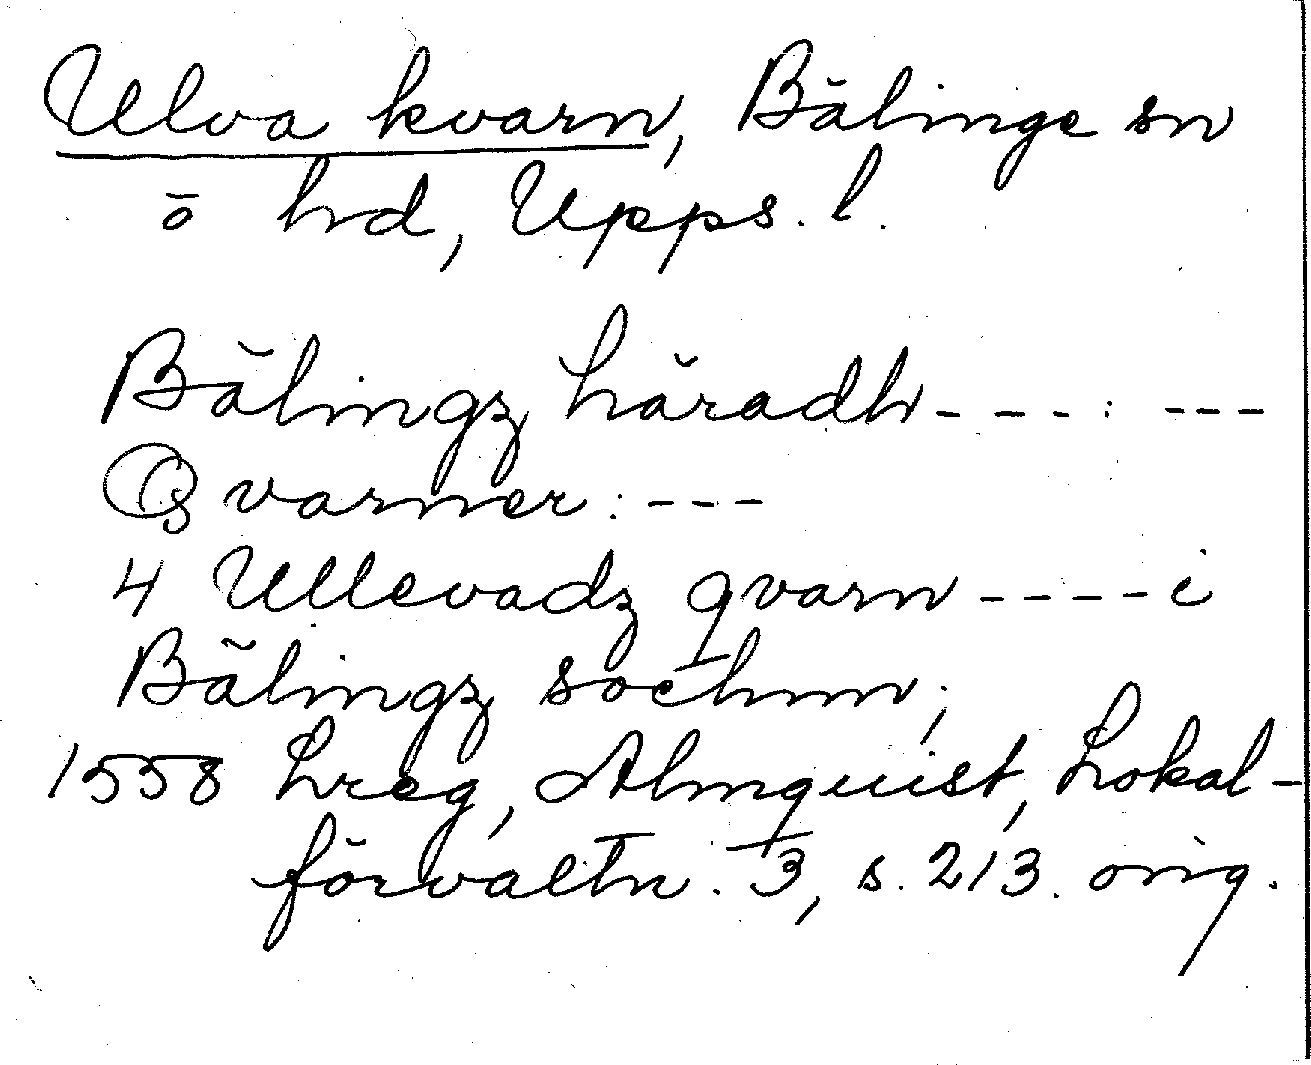 Ulva kvarn, Bälinge sn
o hd, Upps. l.
Bälingz häradh - - - : - - -
Qvarner: - - -
4 Ullevadz qvarn - - - - i
Bälingz sochnn;
1558 hreg, Almquist, Lokal-
förvaltn. 3, s. 213. orig.